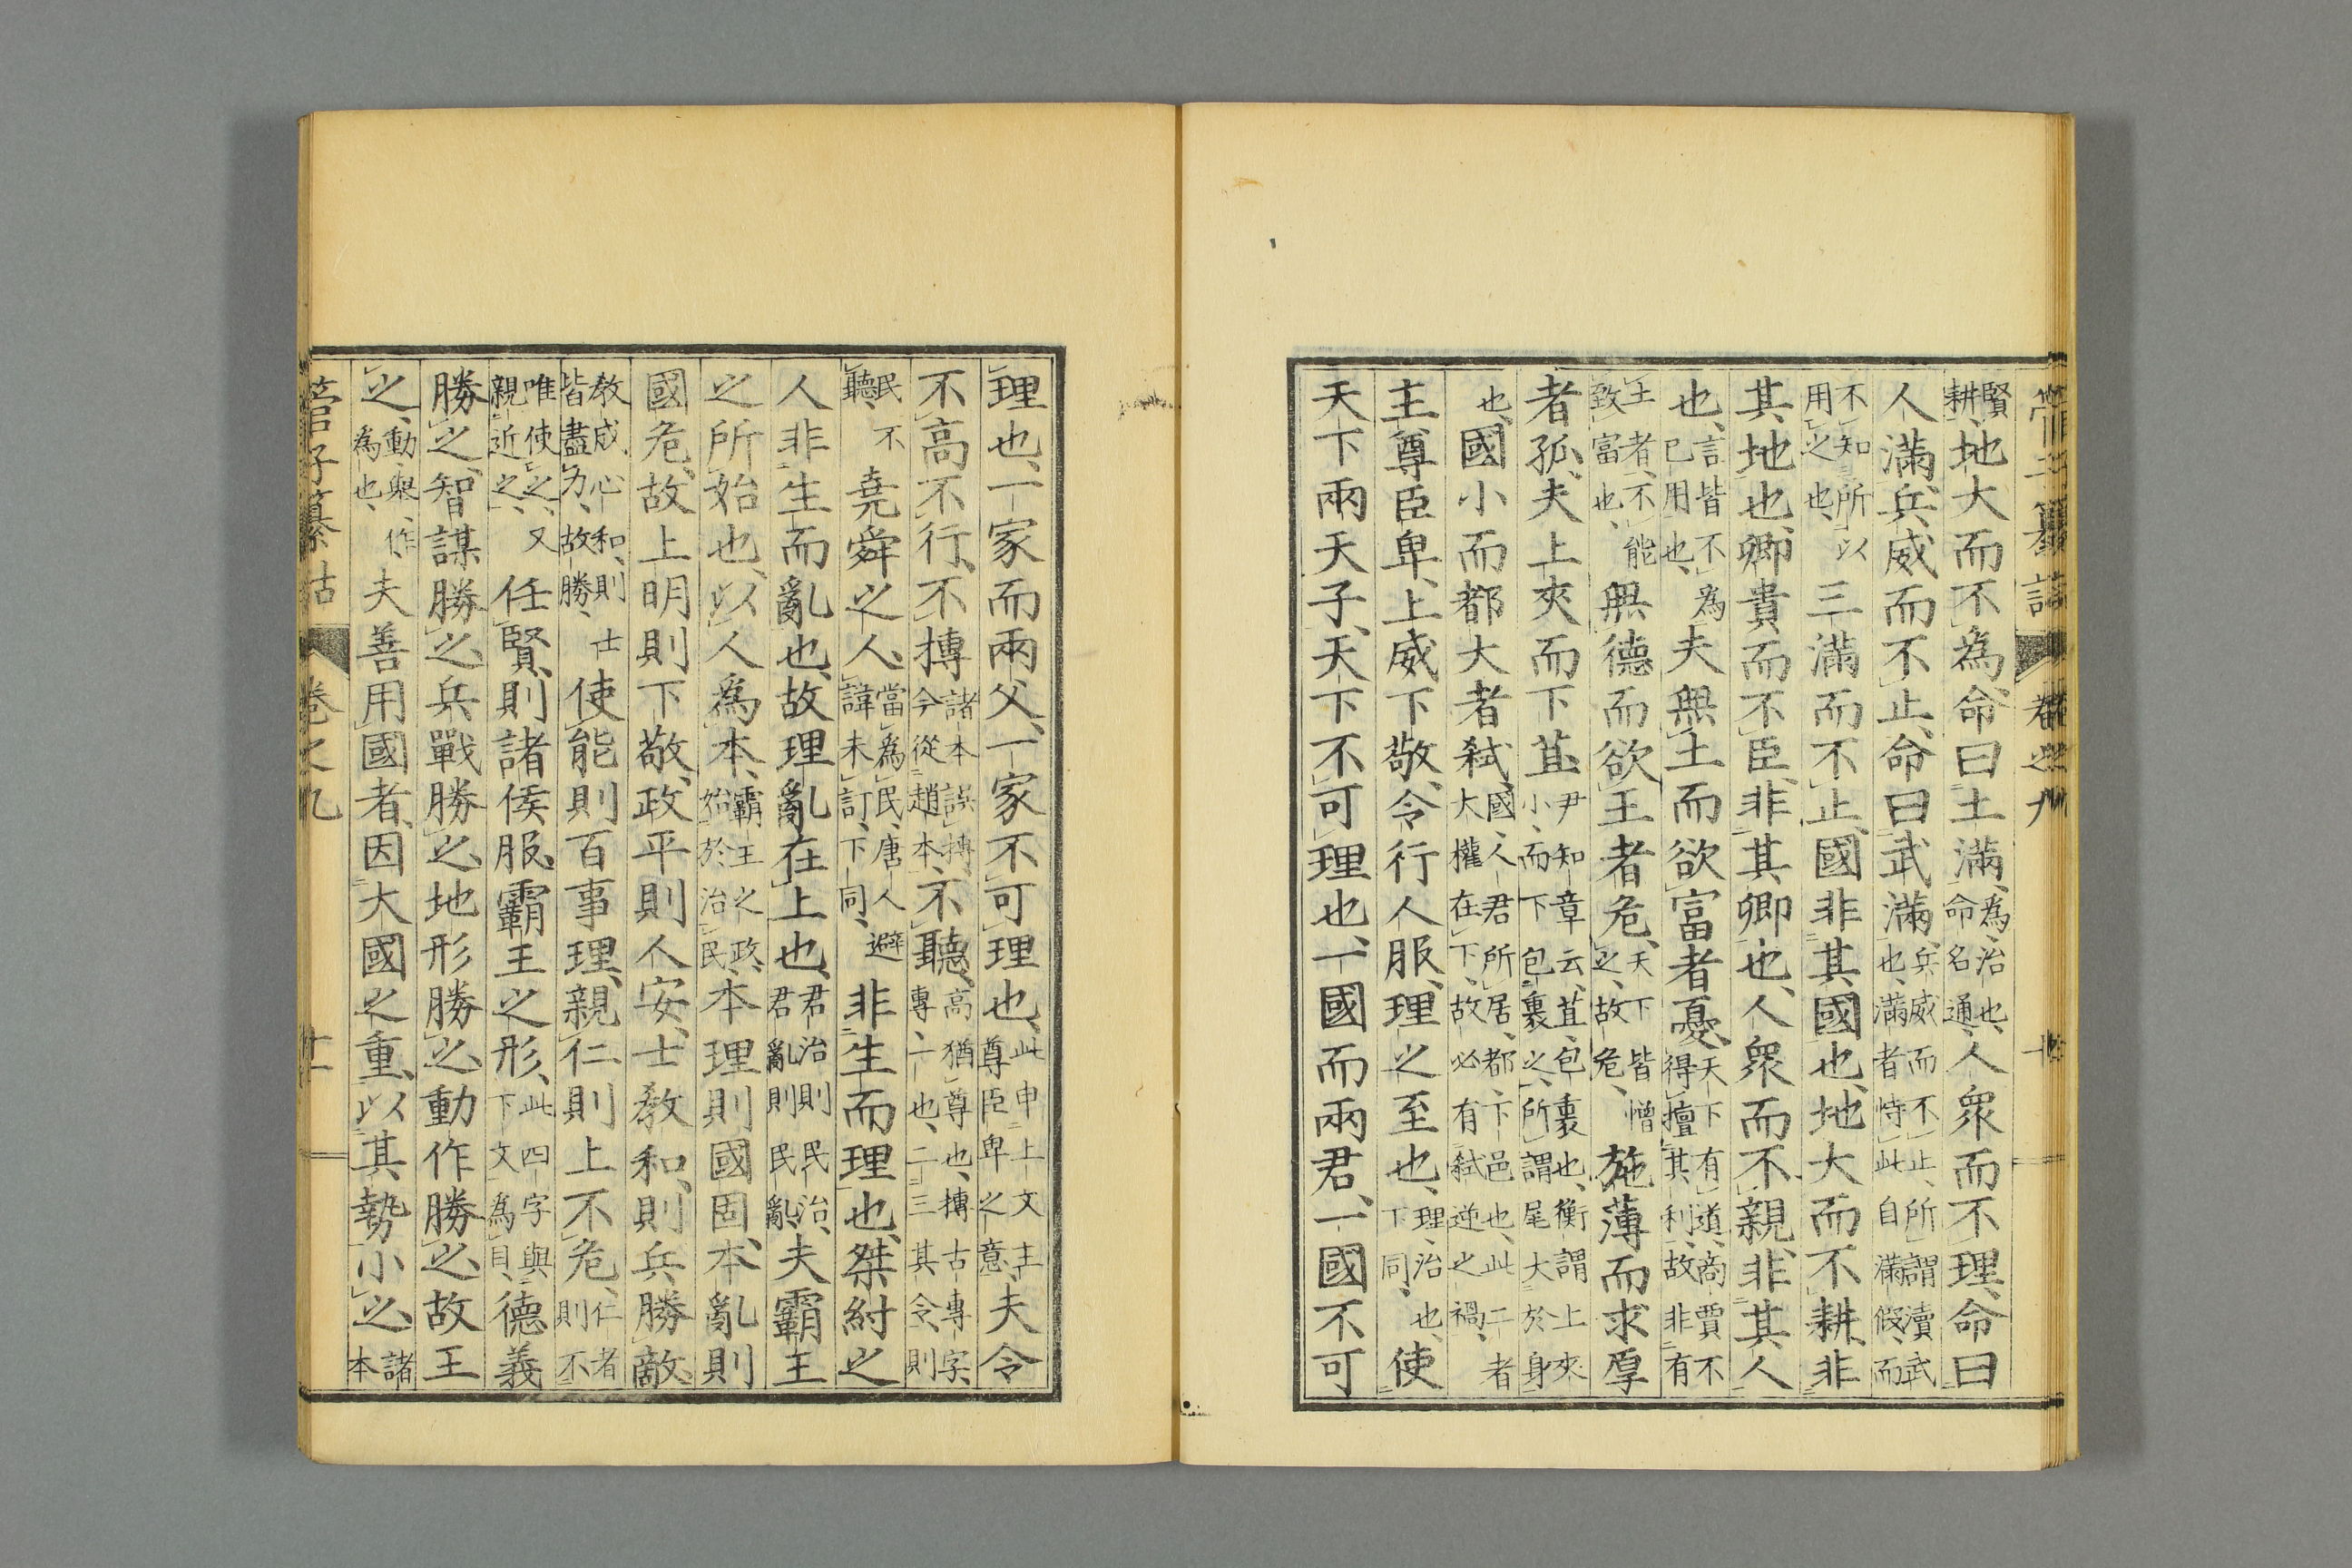 管子纂詁 卷之九 十
賢
耕
地大而不為命曰土滿
為治也
命名通
人衆而不理命曰
人滿兵威而不止命曰武滿
兵威而不止所謂瀆武
也滿者恃此自滿假而
不知所以
用之也
三滿而不止國非其國也地大而不耕非
其地也卿貴而不臣非其卿也人衆而不親非其人
也
言皆不為
已用也
夫無土而欲富者憂
天下有道商賈不
得擅其利故非有
王者不能
致富也
無德而欲王者危
天下皆憎
之故危
施薄而求厚
者孤夫上夾而下苴
尹知章云苴包裹也衡謂上夾
小而下包裹之所謂尾大於身
也
國小而都大者弒
國人君所居都下邑也此二者
大權在下故必有弒逆之禍
主尊臣卑上威下敬令行人服理之至也
理治也
下同
使
天下兩天子天下不可理也一國而兩君一國不可
理也一家而兩父一家不可理也
此申上文主
尊臣卑之意
夫令
不高不行不摶
諸本誤搏
今從趙本
不聽
高猶尊也摶古專字
專一也二三其令則
民不
聽
堯舜之人
當為民唐人避
諱未訂下同
非生而理也桀紂之
人非生而亂也故理亂在上也
君治則民治
君亂則民亂
夫霸王
之所始也以人爲本
霸王之政
始於治民
本理則國固本亂則
國危故上明則下敬政平則人安士教和則兵勝敵
教成心和則士
皆盡力故勝
使能則百事理親仁則上不危
仁者
則不
唯使之又
親近之
任賢則諸侯服霸王之形
此四字與
下文為目
德義
勝之智謀勝之兵戰勝之地形勝之動作勝之故王
之
動舉作
為也
夫善用國者因大國之重以其勢小之
諸
本
管子纂詁 卷之九 十一